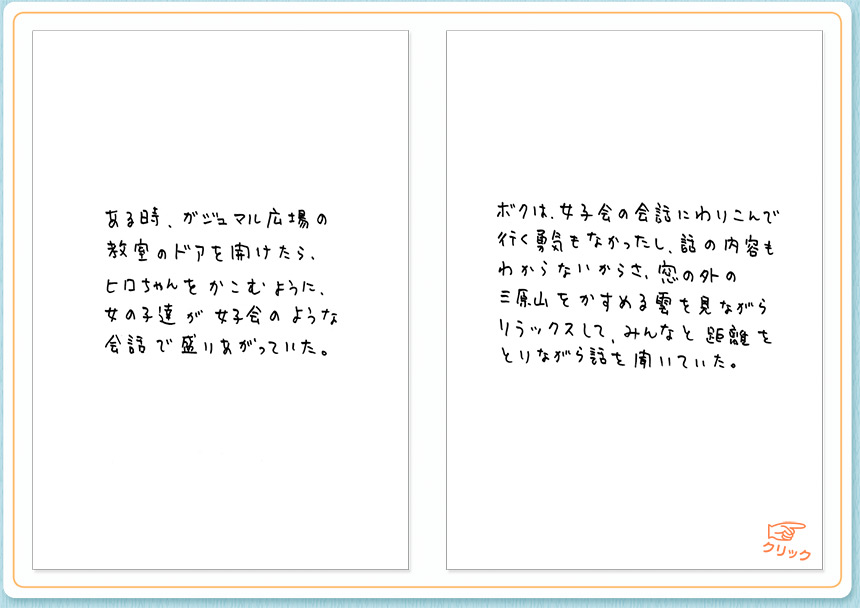 ある時、ガジュマル広場の
教室のドアを開けたら、
ヒロちゃんを かこむ ように、
女の子達が 女子会の ような
会話で 盛りあがっていた。
ボクは、女子会の会話にわりこんで
行く勇気もなかったし、話の内容も
わからないからさ、窓の外の
三原山をかすめる雲を見ながら
リラックスして、みんなと距離を
とりながら話を聞いていた。
クリック